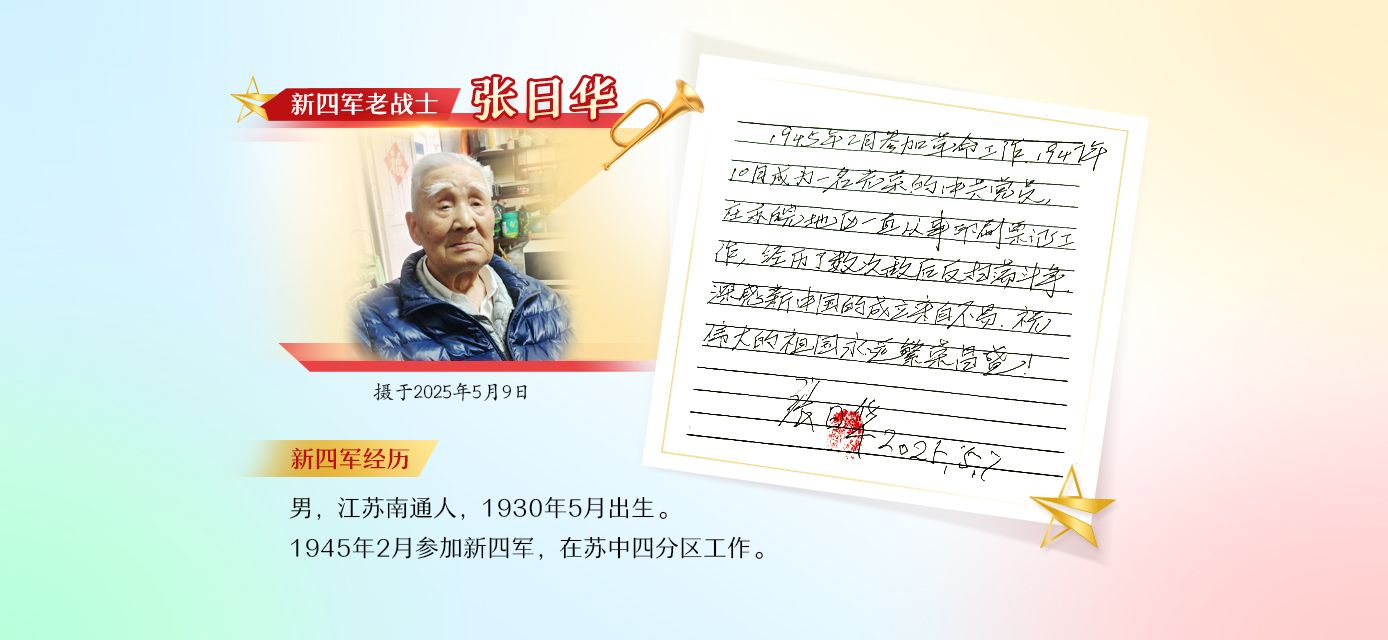 新四军老战士 张日华
福
摄于2025年5月9日
新四军经历
男，江苏南通人，1930年5月出生。
1945年2月参加新四军，在苏中四分区工作。
1945年2月参加革命工作，1947年
10月成为一名光荣的中共党员，
在苏皖地区一直从事印刷票证工
作，经历了数次敌后反扫荡斗争，
深感新中国的成立来自不易，祝
伟大的祖国永远繁荣昌盛！
张日华
2025.5.7